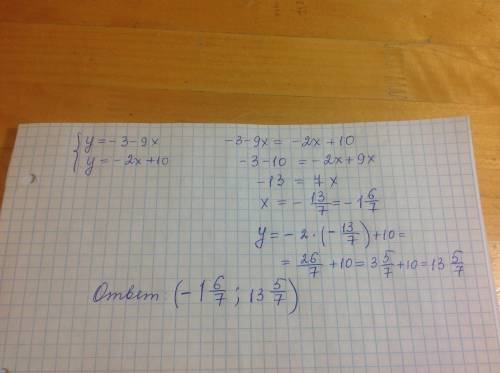 { y = -3-9x
y = -2x+10
-3-9x = -2x+10
-3-10 = -2x+9x
-13 = 7x
x = - 13/7 = -1 6/7
y = -2 · (- 13/7) +10 =
= 26/7 +10 = 3 5/7 +10 = 13 5/7
Ответ: (-1 6/7 ; 13 5/7)